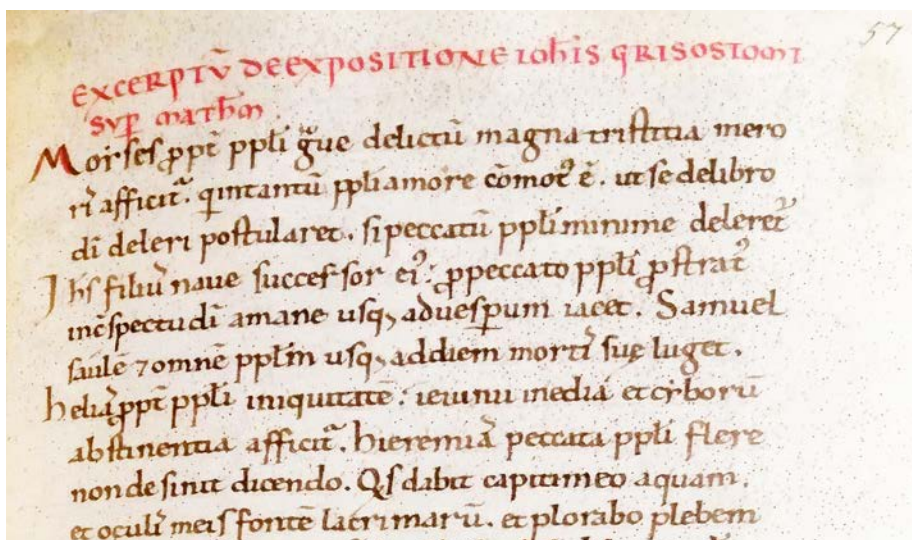 57
EXCERPTŪ DE EXPOSITIONE IOHIS CRISOSTOMI
SVP MATHM
Moises ꝓpt ppli g̃ue delictū magna tristitia mero
ri afficit̃. qui intantū ppli amore cōmot᾽ ē. ut se delibro
di deleri postularet. si peccatū ppli minime deleret᾽
Ihs filiu᾽ naue successor ei᾽: ꝓ peccato ppli ꝓstrat᾽
inc̄spectu di amane usq; aduesꝑum iacet. Samuel
saulē ⁊ omnē pplm usq; addiem morti᾽ suę luget.
helia᾽ ꝓpt ppli iniquitatē: ieiunii inedia et cyborū
abstinentia afficit̃. hieremia᾽ peccata ppli flere
non desinit dicendo. Qs dabit capiti meo aquam.
et oculi᾽ meis fontē lacrimarū. et plorabo plebem